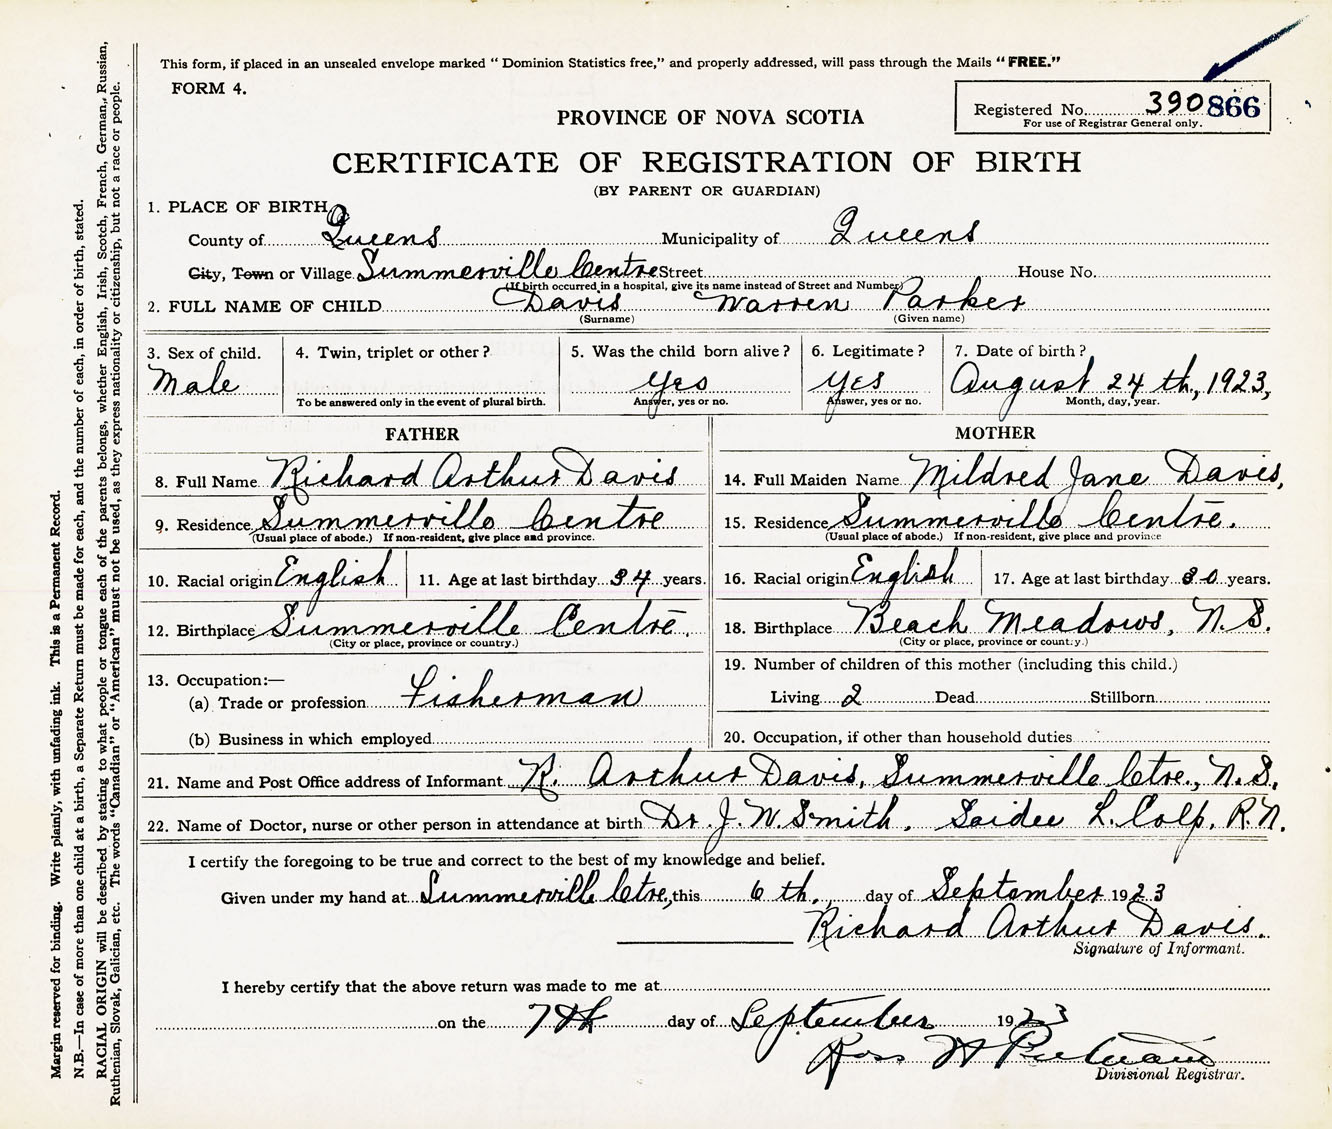 This form, if placed in an unsealed envelope marked "Dominion Statistics free," and properly addressed, will pass through the Mails "FREE."
FORM 4.
Registered No. 390866
For use of Registrar General only.
PROVINCE OF NOVA SCOTIA
CERTIFICATE OF REGISTRATION OF BIRTH
(BY PARENT OR GUARDIAN)
1. PLACE OF BIRTH
County of Queens Municipality of Queens
City, Town or Village Summerville Centre Street House No.
(If birth occurred in a hospital, give its name instead of Street and Number)
2. FULL NAME OF CHILD Davis Warren Parker
(Surname) (Given name)
3. Sex of child. 4. Twin, triplet or other? 5. Was the child born alive? 6. Legitimate? 7. Date of birth?
Male Yes Yes August 24th, 1923,
To be answered only in the event of plural birth. Answer, yes or no. Answer, yes or no. Month, day, year.
FATHER MOTHER
8. Full Name Richard Arthur Davis 14. Full Maiden Name Mildred Jane Davis,
9. Residence Summerville Centre 15. Residence Summerville Centre.
(Usual place of abode.) If non-resident, give place and province. (Usual place of abode.) If non-resident, give place and province
10. Racial origin English 11. Age at last birthday 34 years. 16. Racial origin English 17. Age at last birthday 30 years.
12. Birthplace Summerville Centre. 18. Birthplace Beach Meadows, N.S.
(City or place, province or country.) (City or place, province or country.)
13. Occupation:— 19. Number of children of this mother (including this child.)
(a) Trade or profession Fisherman Living 2 Dead Stillborn
(b) Business in which employed 20. Occupation, if other than household duties
21. Name and Post Office address of Informant R. Arthur Davis, Summerville Ctre., N.S.
22. Name of Doctor, nurse or other person in attendance at birth Dr. J. W. Smith. Saidee L. Colp. R.N.
I certify the foregoing to be true and correct to the best of my knowledge and belief.
Given under my hand at Summerville Ctre., this 6th. day of September 1923
Richard Arthur Davis.
Signature of Informant.
I hereby certify that the above return was made to me at
on the 7th day of September 1923
Ross W Putnam
Divisional Registrar.
Margin reserved for binding. Write plainly, with unfading ink. This is a Permanent Record.
N.B.—In case of more than one child at a birth, a Separate Return must be made for each, and the number of each, in order of birth, stated.
RACIAL ORIGIN will be described by stating to what people or tongue each of the parents belongs, whether English, Irish, Scotch, French, German, Russian,
Ruthenian, Slovak, Galician, etc. The words "Canadian" or "American" must not be used, as they express nationality or citizenship, but not a race or people.